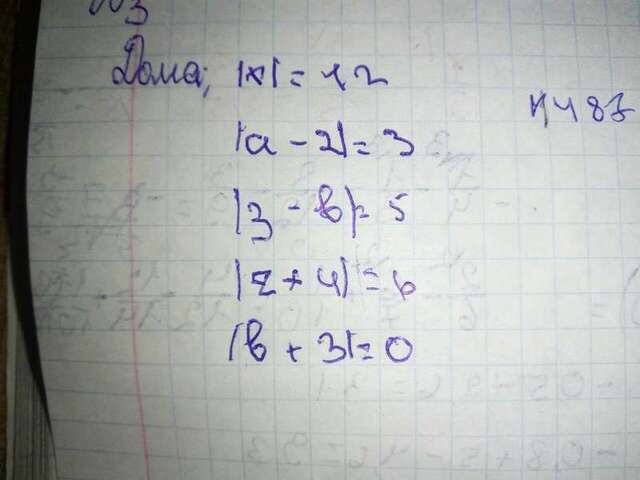 Дома; |x| = 12
№487
|a - 2| = 3
|3 - b| = 5
|z + 4| = 6
|b + 3| = 0